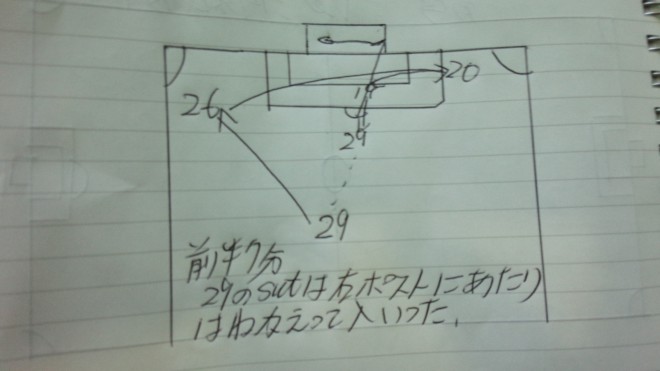 20
26
29
29
前半7分
29のsutは右ポストにあたり
はねかえって入いった。